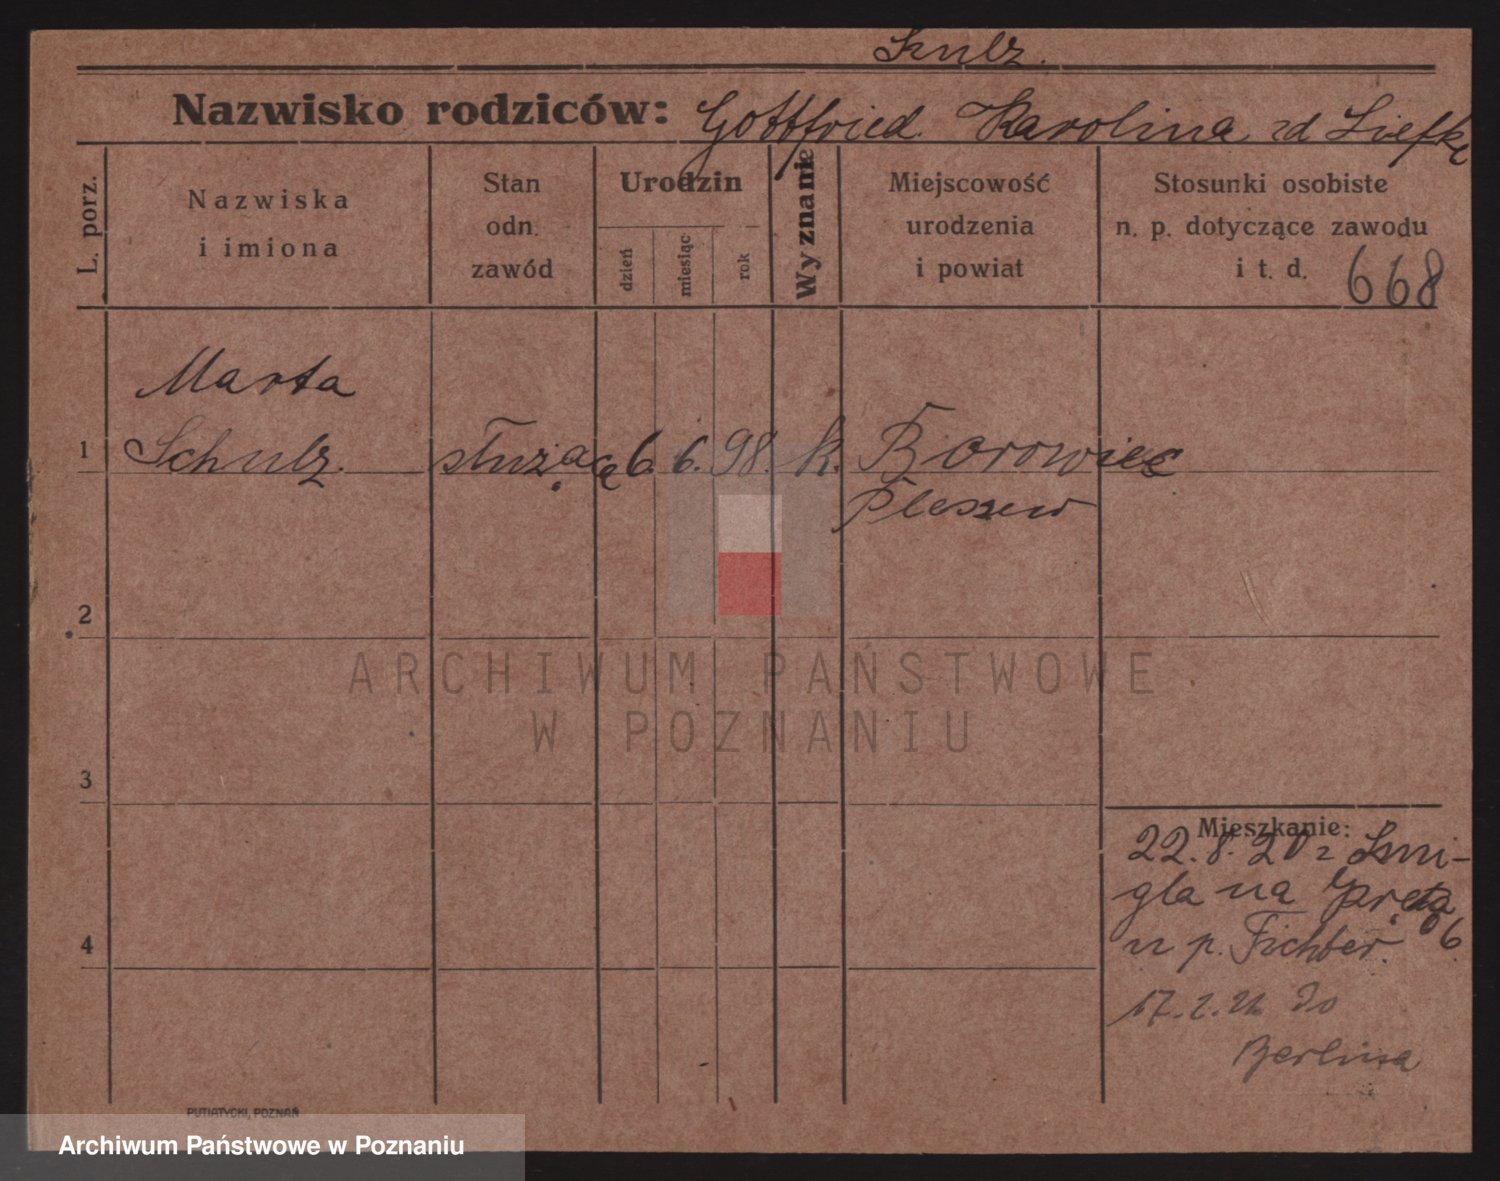 Szulz.
Nazwisko rodziców: Gottfried Karolina zd Liefke
L. porz.
Nazwiska i imiona
Stan odn. zawód
Urodzin
dzień
miesiąc
rok
Wyznanie
Miejscowość urodzenia i powiat
Stosunki osobiste n. p. dotyczące zawodu i t. d.
668
Marta
1 Schulz. służącą 6. 6. 98. k. Borowiec
Pleszew
2
3
4
Mieszkanie:
22.8.20 z Szmi-
gla na
u p. Fichter. 6
17. 2. 21. do
Berlina
PUTIATYCKI, POZNAŃ
ARCHIWUM PAŃSTWOWE
W POZNANIU
Archiwum Państwowe w Poznaniu